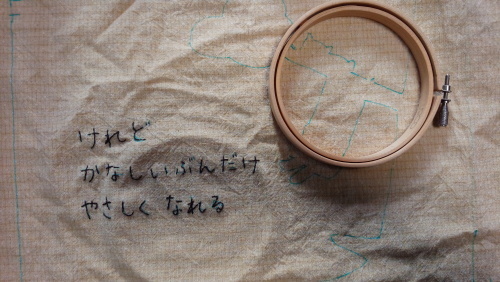 けれど
かなしいぶんだけ
やさしく なれる